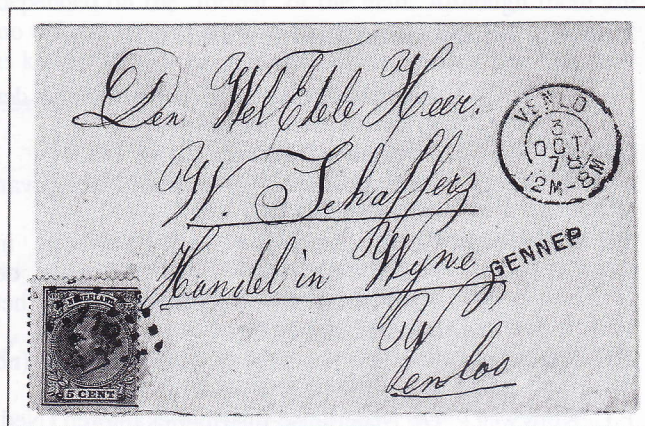 Den WelEdele Heer.
W. Schaffers
Handel in Wyne
Venloo
VENLO
3
OCT
78
12M-8M
GENNEP
NEDERLAND
5 CENT